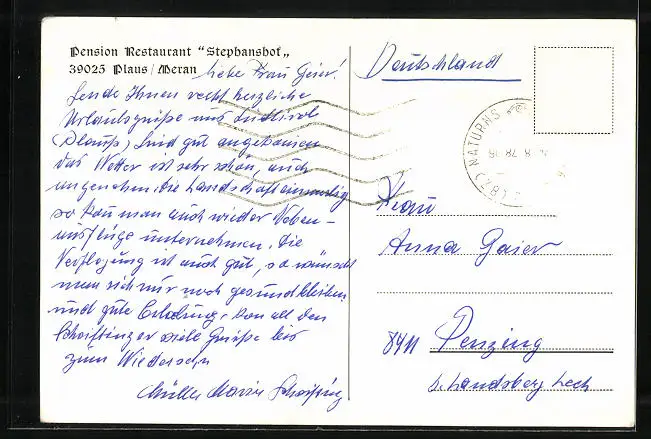 Pension Restaurant "Stephanshof„
39025 Plaus / Meran
liebe Frau Geier!
Sende Ihnen recht herzliche
Urlaubsgrüße aus Südtirol
(Plaus) Sind gut angekommen
das Wetter ist sehr schön, auch
angenehm, die Landschaft einmalig
so kan man auch wieder Neben-
ausflüge unternehmen. Die
Verflegung ist auch gut, so wünscht
man sich nur noch gesund bleiben
und gute Erholung, von all den
viele Grüße bis
zum Wiedersehn
Müller Maria
Deutschland
NATURNS
8.78.18
(BZ)
Frau
Anna Gaier
8911 Penzing
b. Landsberg Lech